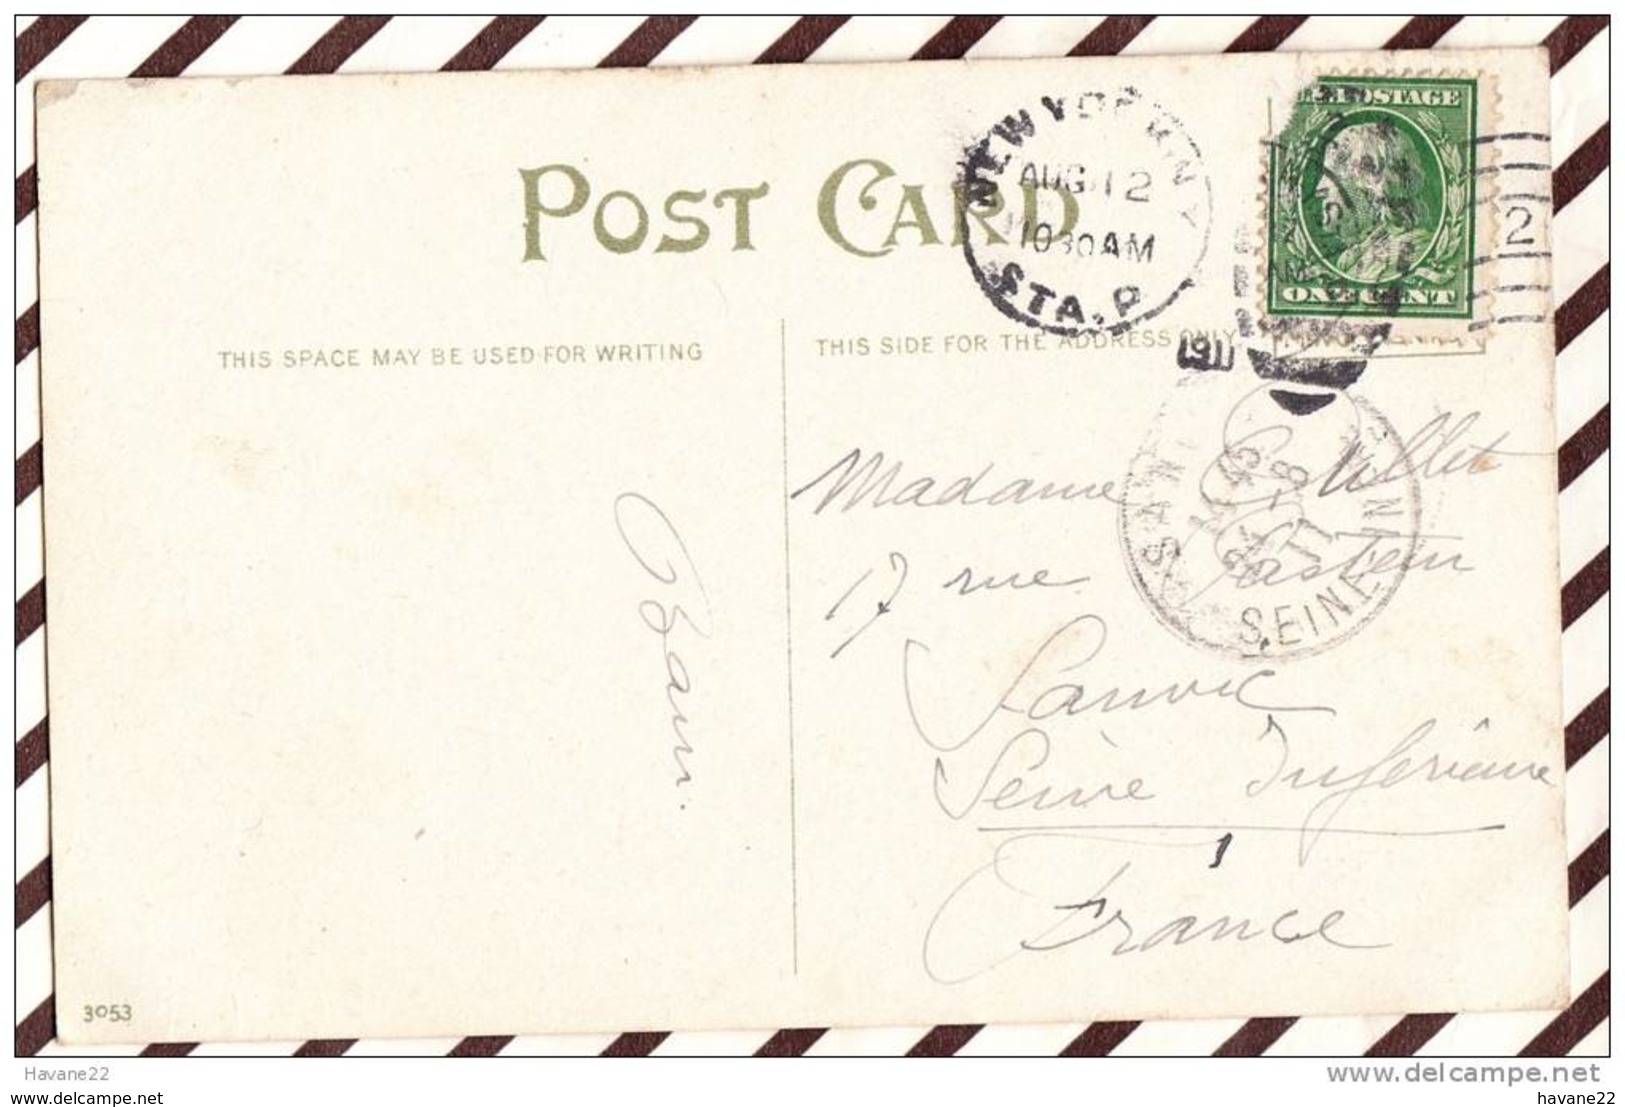 POST CARD
NEW YORK, N.Y.
AUG 12
1030 AM
STA. P
1911
U.S. POSTAGE
ONE CENT
2
THIS SPACE MAY BE USED FOR WRITING
THIS SIDE FOR THE ADDRESS ONLY
SEINE
Madame
17 rue Pasteur
Sanvic
Seine Inférieure
France
3053
Havane22
www.delcampe.net
havane22
havane22